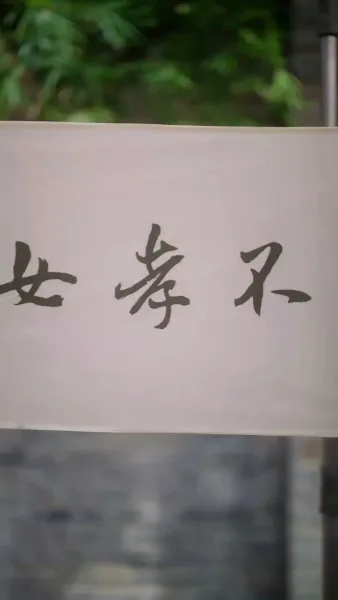 不孝女